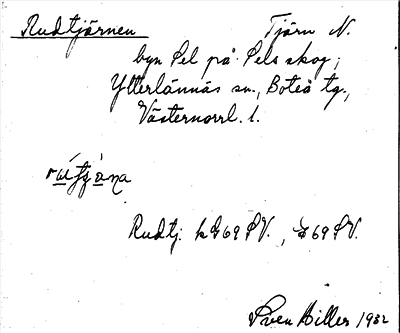 Rudtjärnen Tjärn N.
byn Pel på Pels skog,
Ytterlännäs sn., Boteå tg.,
Västernorrl. l.
Rudtj. k G 69 SV., 69 SV.
Sven Hiller 1932